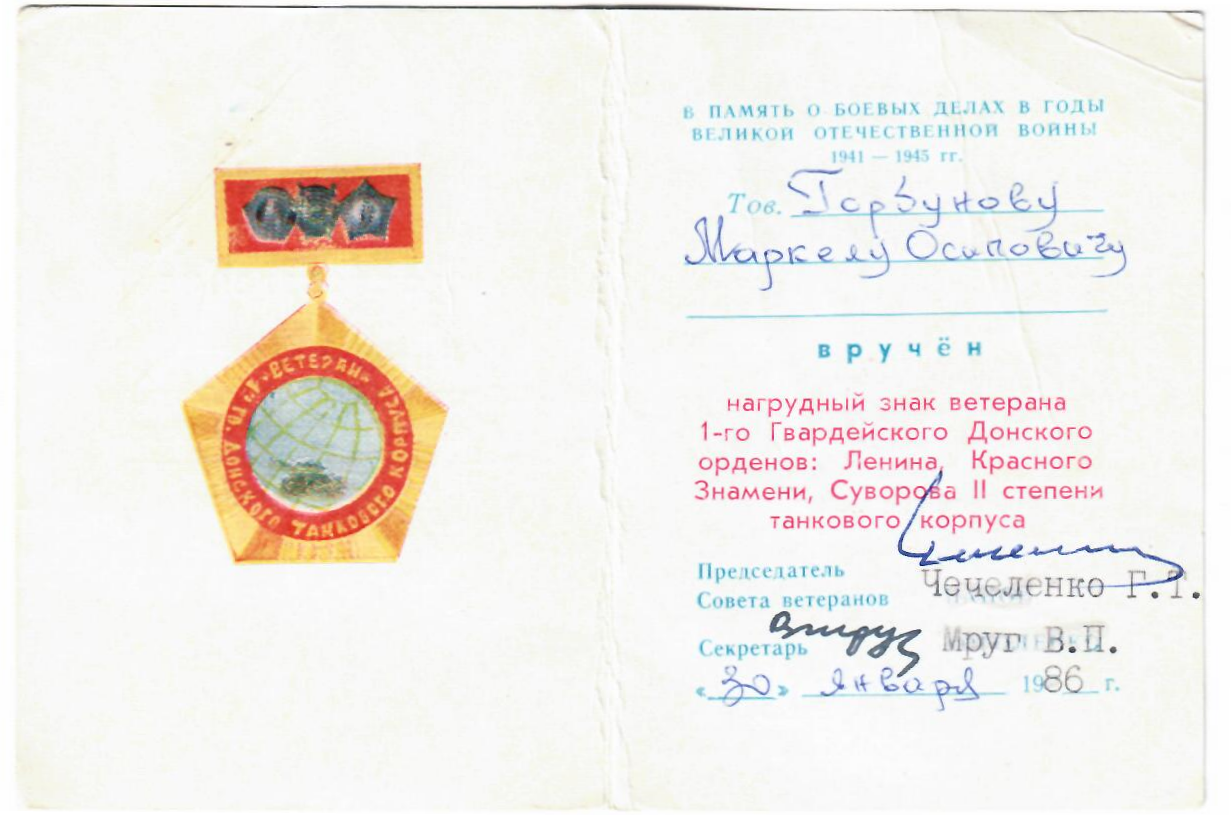 «ВЕТЕРАН» 1 ГВ. ДОНСКОГО ТАНКОВОГО КОРПУСА
В ПАМЯТЬ О БОЕВЫХ ДЕЛАХ В ГОДЫ
ВЕЛИКОЙ ОТЕЧЕСТВЕННОЙ ВОЙНЫ
1941 — 1945 гг.
Тов. Горбунову
Маркелу Осиповичу
вручён
нагрудный знак ветерана
1-го Гвардейского Донского
орденов: Ленина, Красного
Знамени, Суворова II степени
танкового корпуса
Председатель
Совета ветеранов Чечеленко Г.Т.
Секретарь Мруг В.П.
«30» января 1986 г.